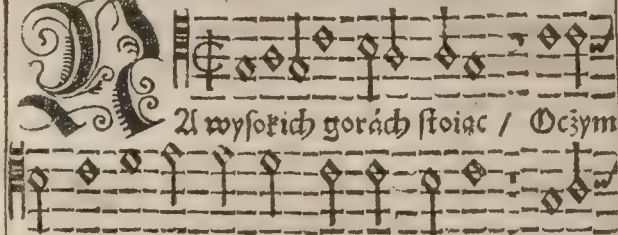 NA wyſokich gorách ſtoiąc / Ocżym